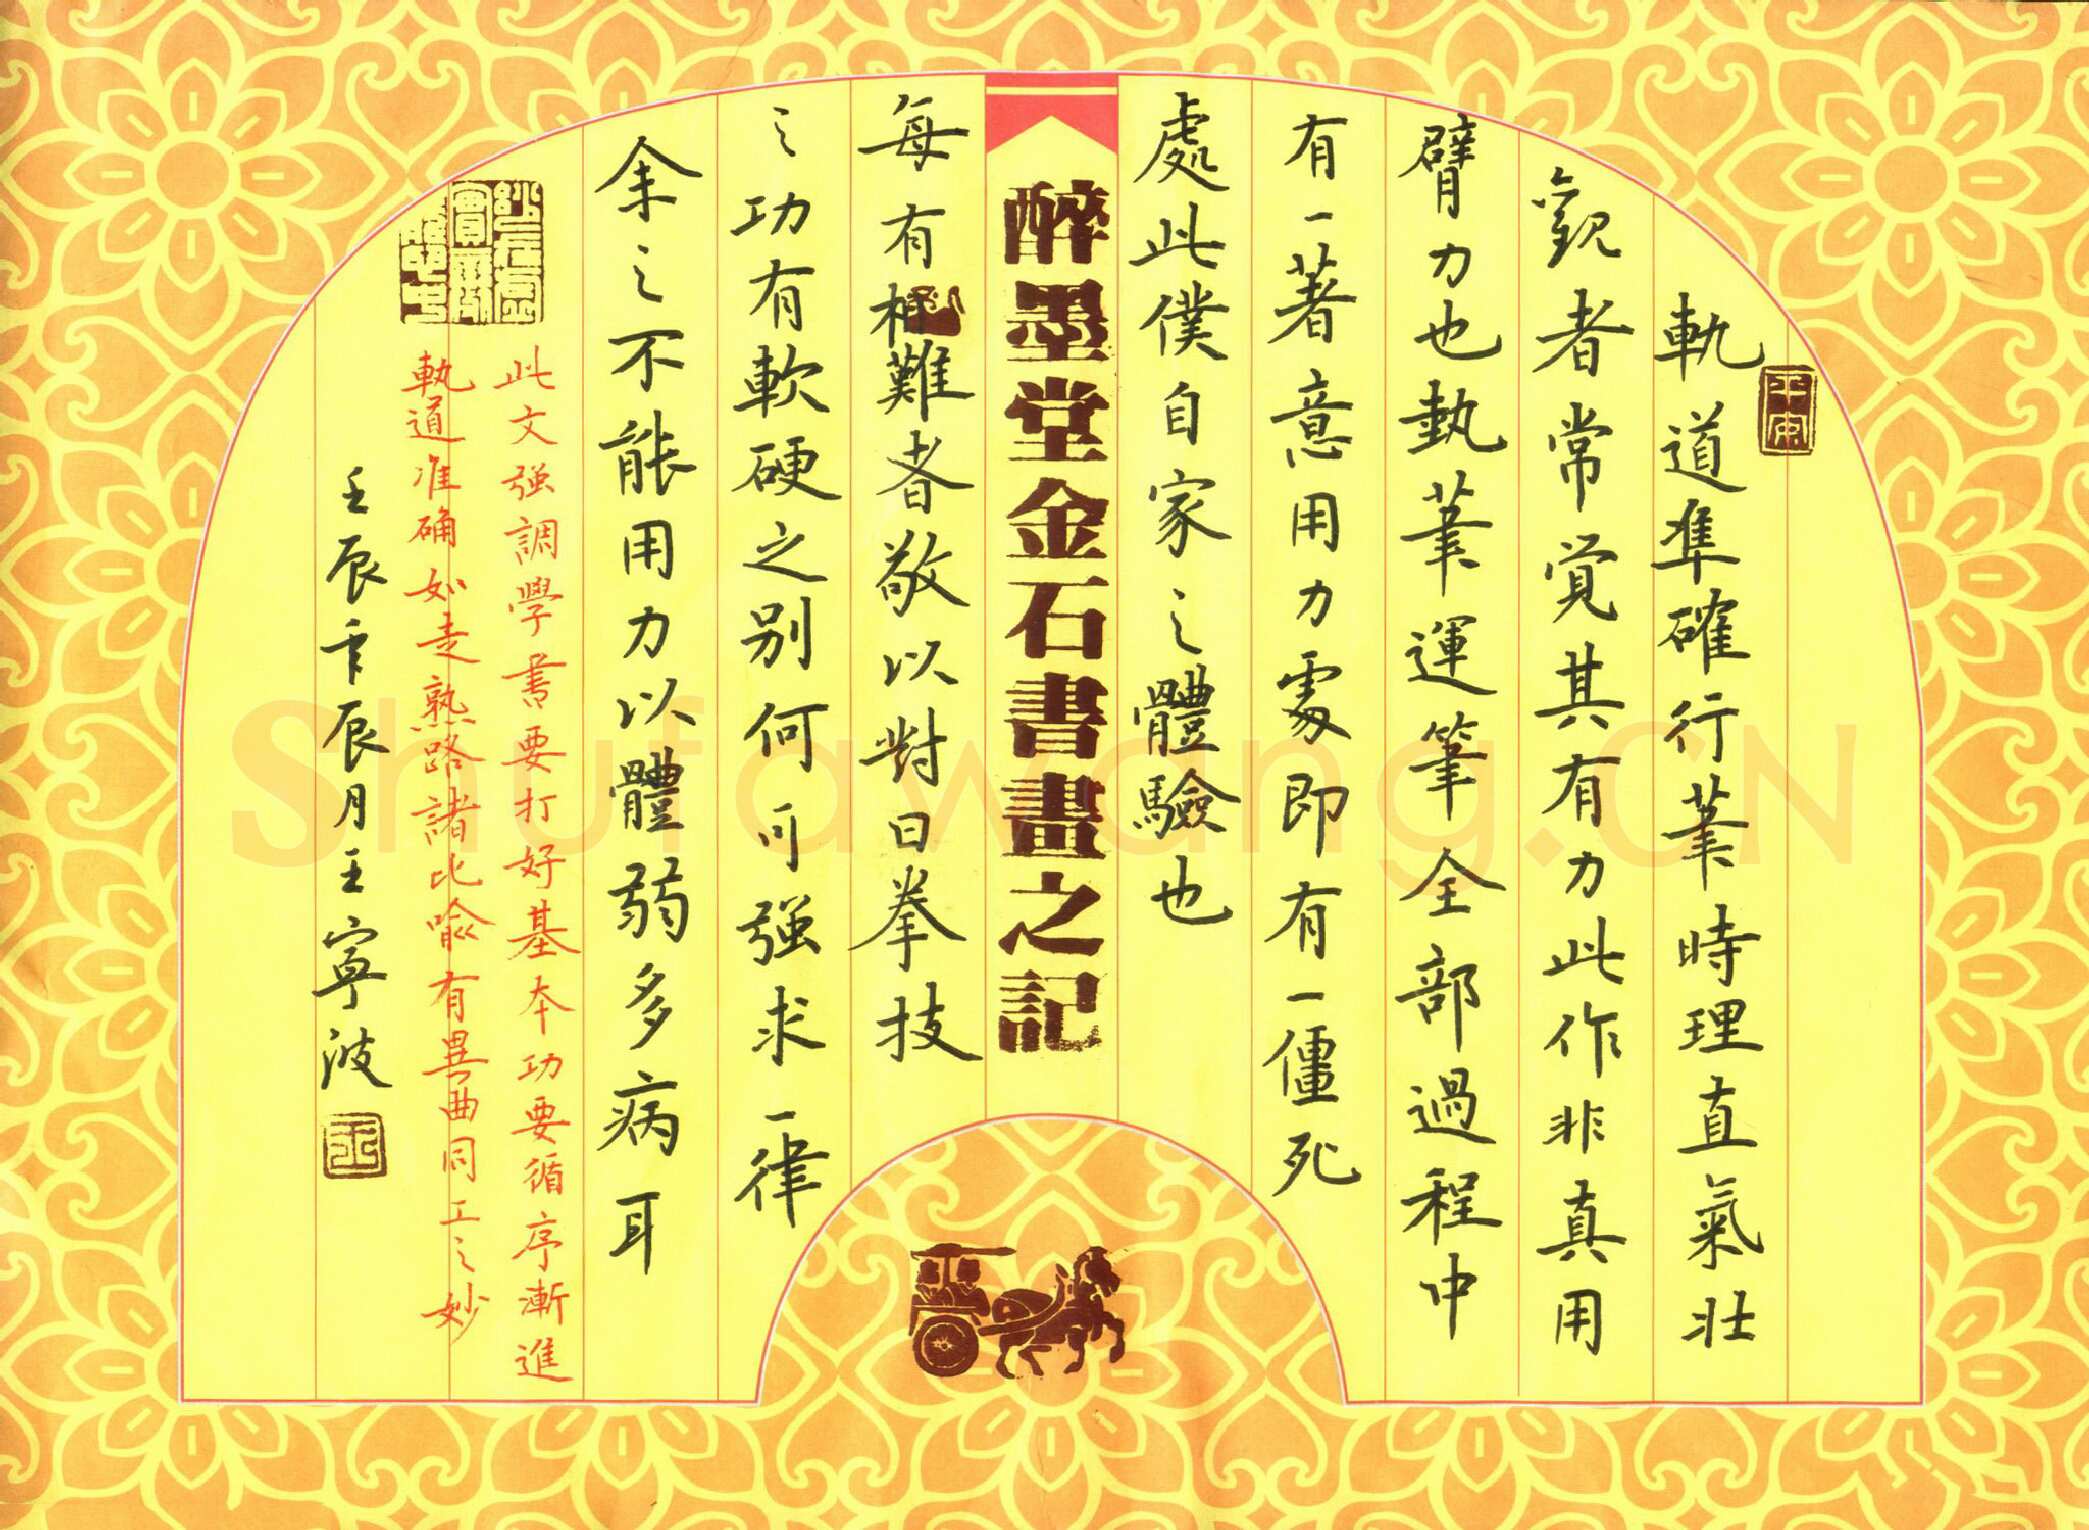 軌道準確行筆時理直氣壯
觀者常覚其有力此作非真用
臂力也執筆運筆全部過程中
有一著意用力處即有一僵死
處此僕自家之體驗也
醉墨堂金石書畫之記
每有相難者敬以對曰拳技
之功有軟硬之别何可強求一律
余之不能用力以體弱多病耳
此文强調學書要打好基本功要循序漸進
軌道准确如走熟路諸比喻有異曲同工之妙
壬辰年辰月王寧波
Shufawang.CN